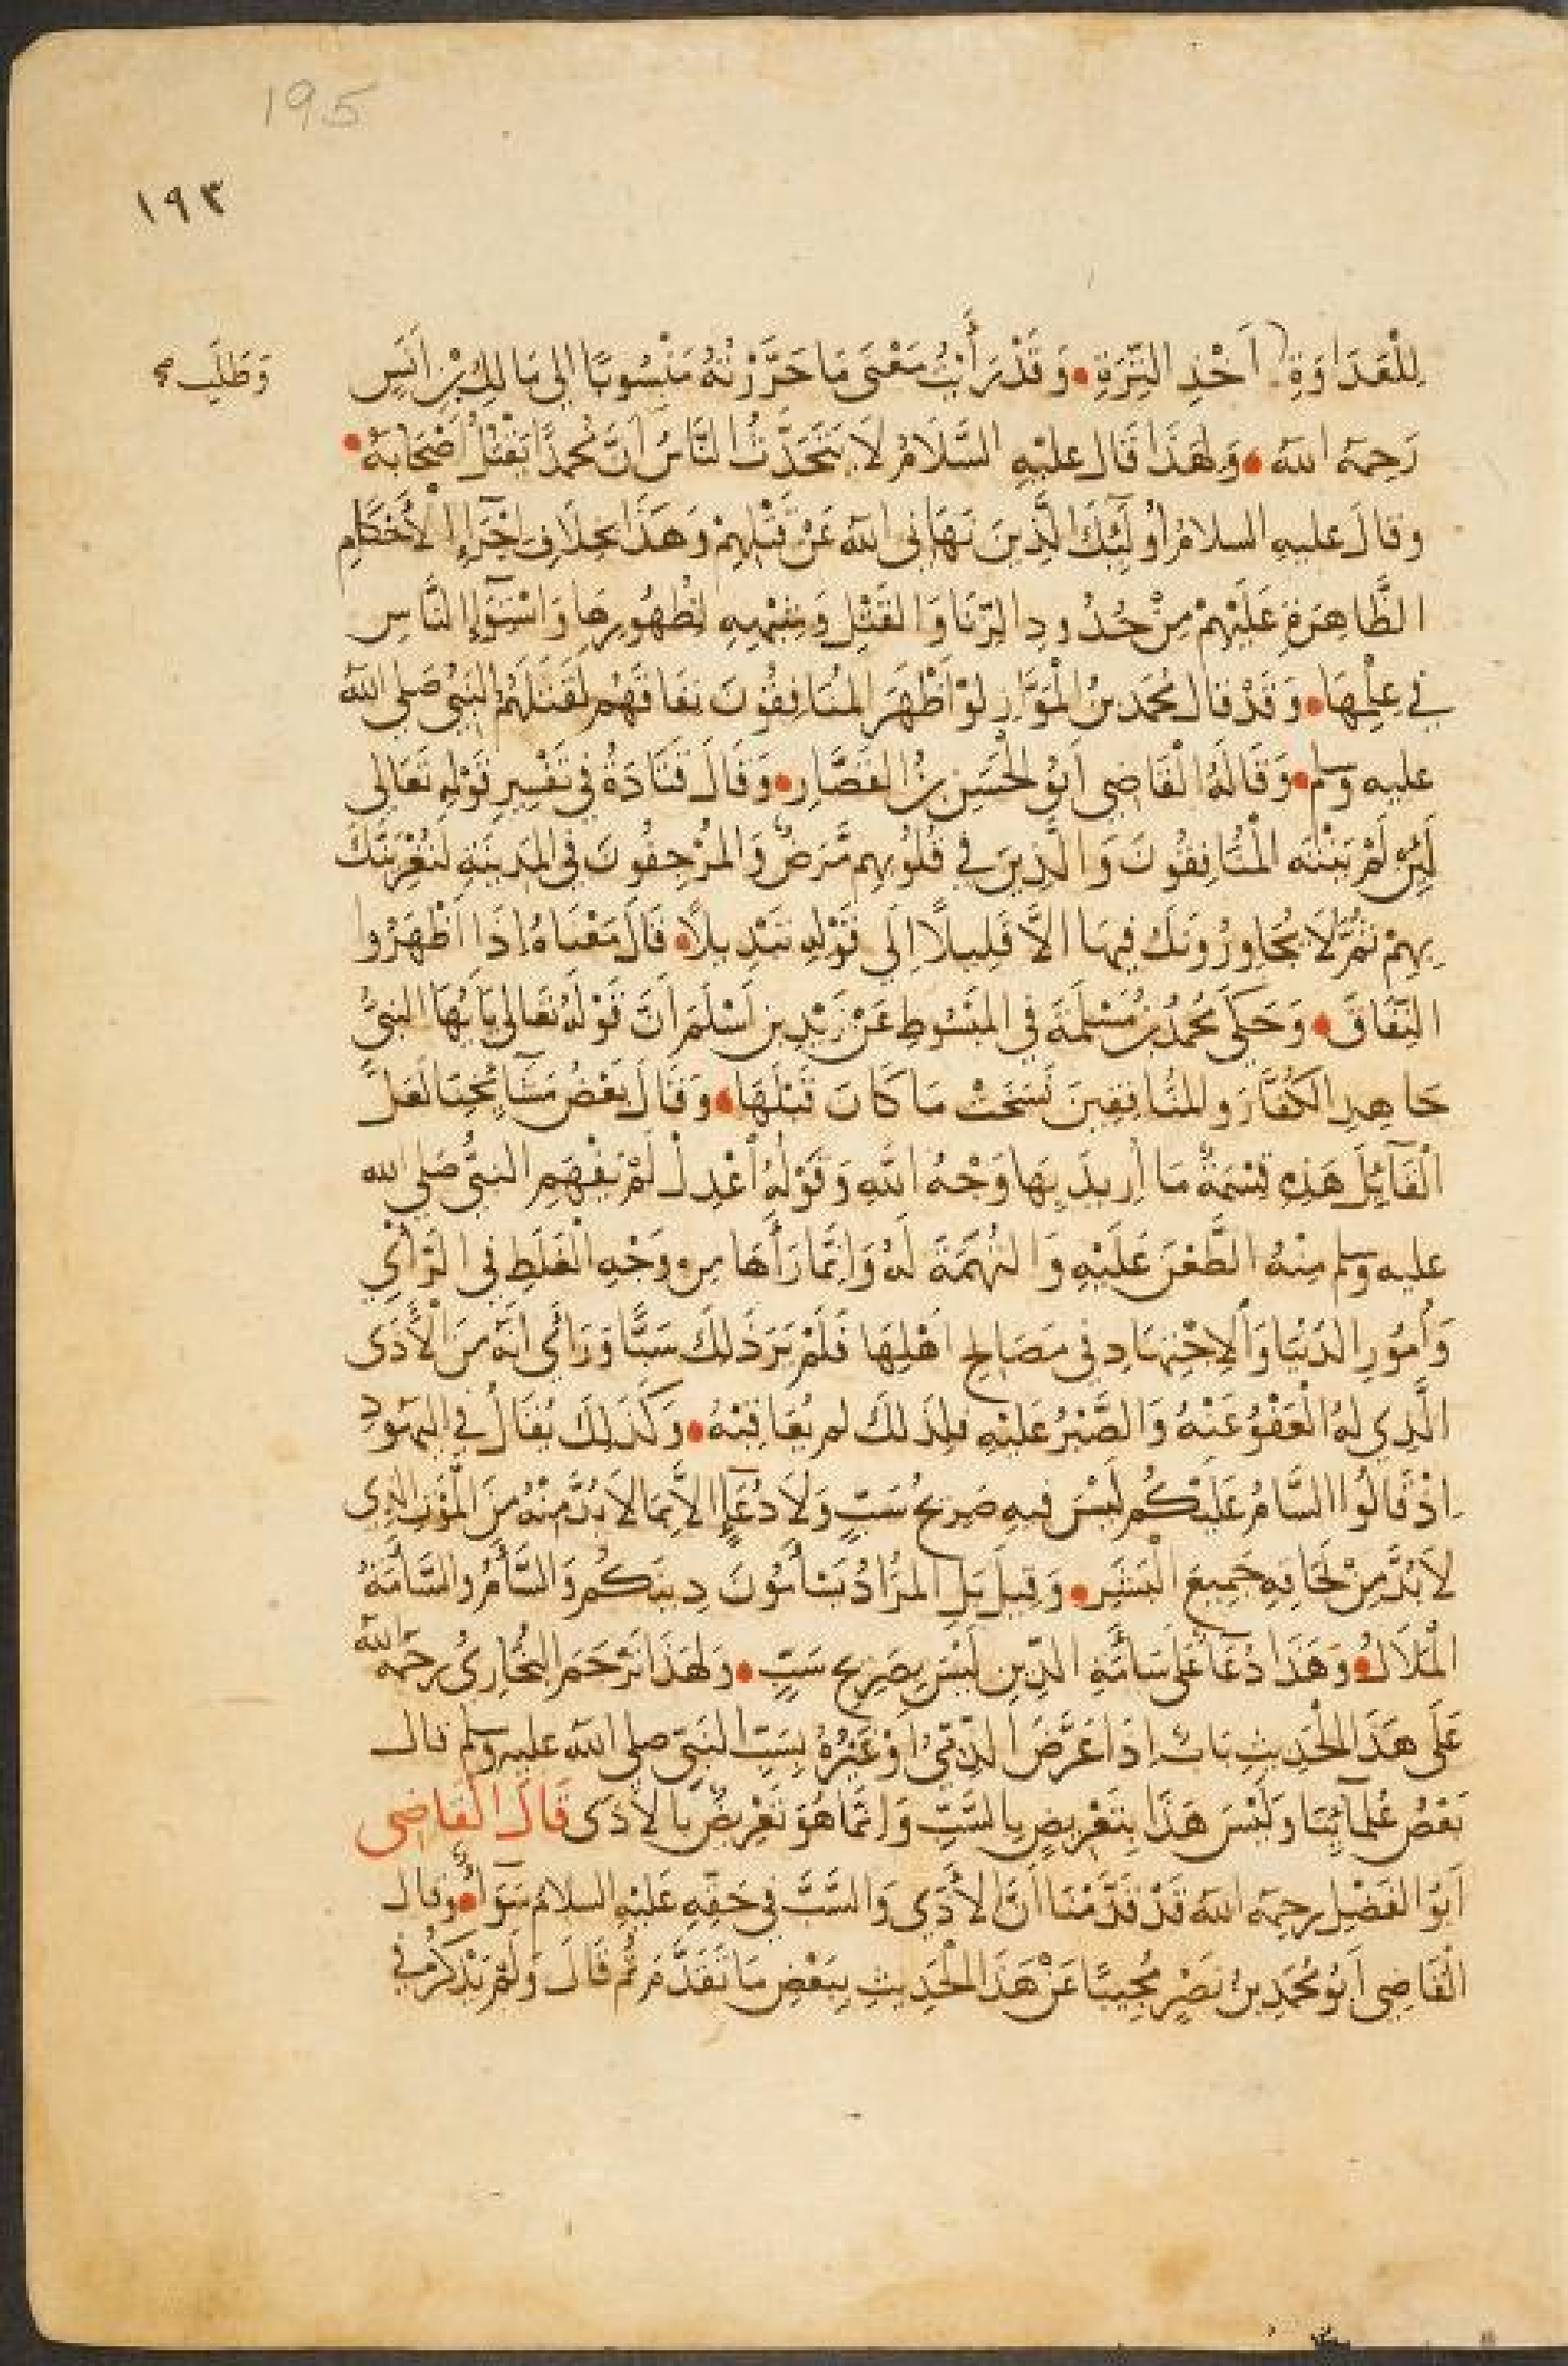 195
١٩٣
لِلْعَدَاوَةِ أَخْذِ التِّرَةِ • وَقَدْ رَأَيْتُ مَعْنَى مَا حَرَّرْتُهُ مَنْسُوبًا إلى مَالِكِ بْنِ أَنَسٍ
وَطَلَبِ صح
رَحِمَهُ اللهُ • وَلِهَذَا قَالَ عليْهِ السَّلَامُ لَا يَتَحَدَّثُ النَّاسُ أَنَّ مُحَمَّدًا يَقْتُلُ أَصْحَابَهُ •
وقالَ عليهِ السلامُ أُولَئِكَ الَّذِينَ نَهَانِي اللهُ عَنْ قَتْلِهِمْ وَهَذَا بِخِلَافِ إِجْرَاءِ الْأَحْكَامِ
الظَّاهِرَةِ عَلَيْهِمْ مِنْ حُدُودِ الزِّنَا وَالْقَتْلِ وَشِبْهِهِ لِظُهُورِهَا وَاسْتِوَاءِ النَّاسِ
فِي عِلْمِهَا • وَقَدْ قَالَ مُحَمَّد بنُ الْمَوَّازِ لَوْ أَظْهَرَ الْمُنَافِقُونَ نِفَاقَهُمْ لَقَتَلَهُمُ النَّبِيُّ صَلى اللهُ
عليه وسلم • وَقَالَهُ الْقَاضِي أَبُو الْحَسَنِ بْنُ الْقَصَّارِ • وَقَالَ قَتَادَةُ فِي تَفْسِيرِ قَوْلِهِ تَعَالَى
لَئِنْ لَمْ يَنْتَهِ الْمُنَافِقُونَ وَالَّذِينَ فِي قُلُوبِهِمْ مَرَضٌ وَالْمُرْجِفُونَ فِي الْمَدِينَةِ لَنُغْرِيَنَّكَ
بِهِمْ ثُمَّ لَا يُجَاوِرُونَكَ فِيهَا الَّا قَلِيلًا إِلَى قَوْلِهِ تَبْدِيلًا • قَالَ مَعْنَاهُ إِذَا أَظْهَرُوا
النِّفَاقَ • وَحَكَى مُحَمَّدُ بْنُ مَسْلَمَةَ فِي الْمَبْسُوطِ عَنْ زَيْدِ بنِ أَسْلَمَ أَنَّ قَوْلَهُ تَعَالى يَا يُّهَا النبيُّ
جَاهِدِ الْكُفَّارَ والمُنَافِقِينَ نَسَخَتْ مَا كَانَ قَبْلَهَا • وَقَالَ بَعْضُ مَشَايِخِنَا لَعَلَّ
الْقَائِلَ هَذِهِ قِسْمَةٌ مَا أُرِيدَ بِهَا وَجْهُ اللهِ وَقَوْلُهُ أَعْدِلْ لَمْ يَفْهَمِ النبيُّ صَلى الله
عليه وسلم مِنْهُ الطَّعْنَ عَلَيْهِ وَالتُّهَمَةَ لَهُ وَإِنَّمَا رَأَهَا مِن وَجْهِ الْغَلَطِ فِي الرَّأْيِ
وَأُمُورِ الدُّنْيَا وَالِاجْتِهَادِ فِي مَصَالِحِ أَهْلِهَا فَلَمْ يَرَ ذَلِكَ سَبًّا وَرَأَى أَنَّهُ مِنَ الْأَذَى
الَّذِي لَهُ الْعَفْوُ عَنْهُ وَالصَّبْرُ عَلَيْهِ فلِذَلِكَ لم يُعَاقِبْهُ • وَكَذَلِكَ يُقَالُ فِي اليَهُودِ
إِذْ قَالُوا السَّامُ عَلَيْكُمْ لَيْسَ فيهِ صَرِيحُ سَبٍّ وَلَا دُعَاءٍ إلَّا بِمَا لَا بُدَّ مِنْهُ مِنَ الْمَوْتِ الذي
لَا بُدَّ مِنْ لَحَاقِهِ جَمِيعَ الْبَشَرِ • وَقِيلَ بَلِ الْمُرَادُ تَسْأَمُونَ دِينَكُمْ وَالسَّأْمُ وَالسَّأَمَةُ
الْمَلَالُ • وَهَذَا دُعَاءٌ عَلَى سَأَمَةِ الدِّينِ لَيْسَ بِصَرِيحِ سَبٍّ • وَلِهَذَا تَرْجَمَ الْبُخَارِيُّ رحمَهُ اللهُ
عَلَى هَذَا الْحَدِيثِ بَابٌ إذَا عَرَّضَ الذِّمِّيُّ أَوْ غَيْرُهُ بِسَبِّ النَّبِيِّ صلى اللهُ عليهِ وسلم قال
بَعْضُ عُلَمَائِنَا وَلَيْسَ هَذَا بِتَعْرِيضٍ بِالسَّبِّ وَإِنَّمَا هُوَ تَعْرِيضٌ بِالْأَذَى قَالَ الْقَاضِي
أَبُو الْفَضْلِ رحِمَهُ اللهُ قَدْ قَدَّمْنَا أَنَّ الْأَذَى وَالسَّبَّ فِي حَقِّهِ عَلَيْهِ السلامُ سَوَاءٌ • وَقَالَ
الْقَاضِي أَبُو مُحَمَّدِ بنُ نَصْرٍ مُجِيبًا عَنْ هَذَا الْحَدِيثِ بِبَعْضِ مَا تَقَدَّمَ ثُمَّ قَالَ وَلَمْ يَذْكُرْ فِي